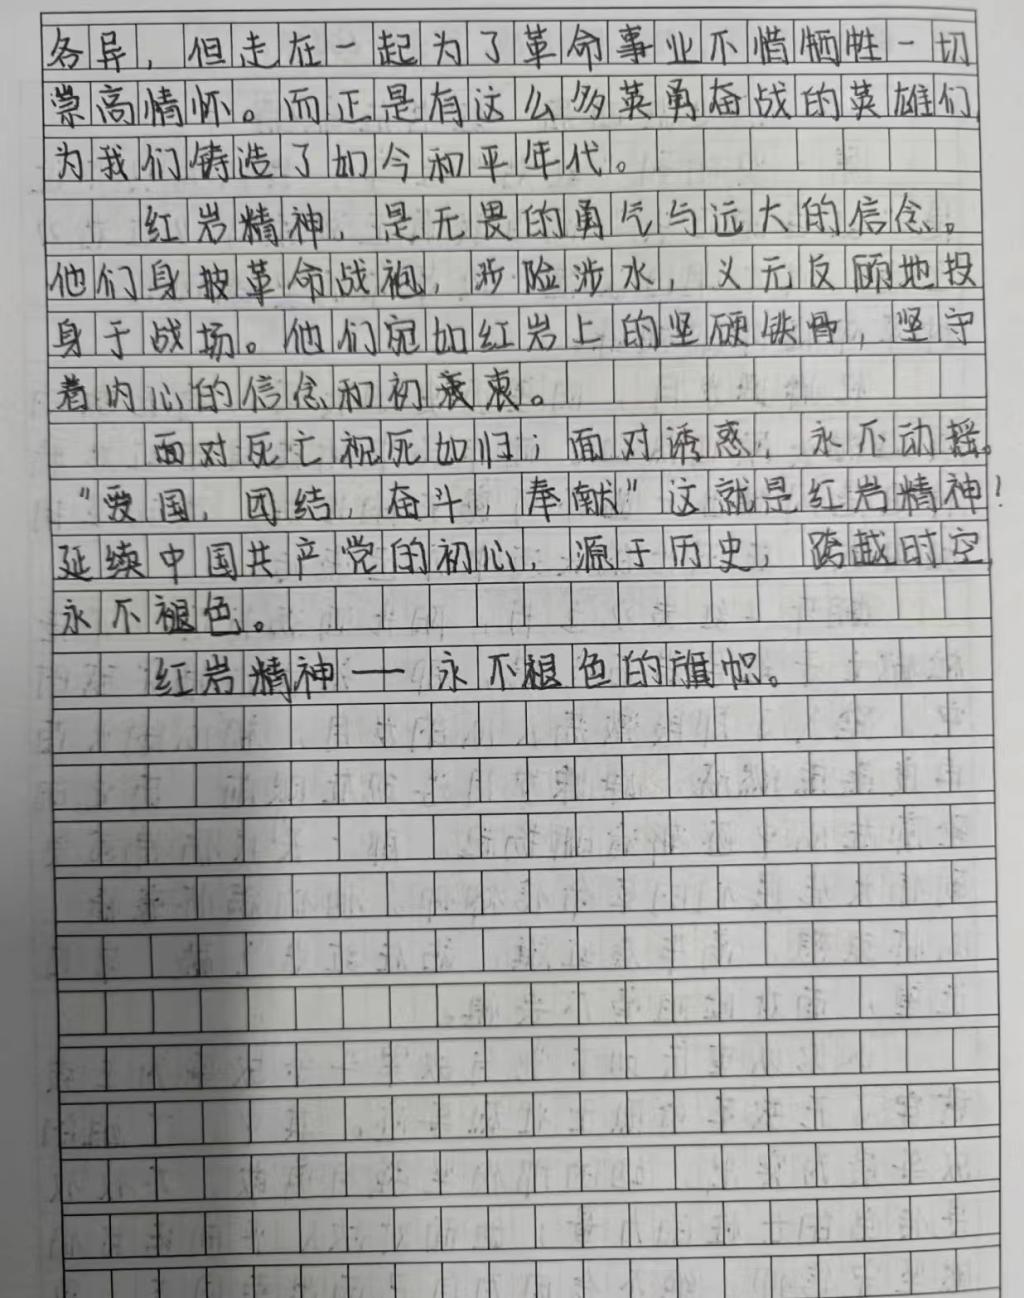 各异，但走在一起为了革命事业不惜牺牲一切
崇高情怀。而正是有这么多英勇奋战的英雄们，
为我们铸造了如今和平年代。
红岩精神，是无畏的勇气与远大的信念。
他们身披革命战袍，涉险涉水，义无反顾地投
身于战场。他们宛如红岩上的坚硬铁骨，坚守
着内心的信念和初衷衷。
面对死亡视死如归；面对诱惑，永不动摇。
“爱国，团结，奋斗，奉献”这就是红岩精神！
延续中国共产党的初心，源于历史，跨越时空，
永不褪色。
红岩精神——永不褪色的旗帜。